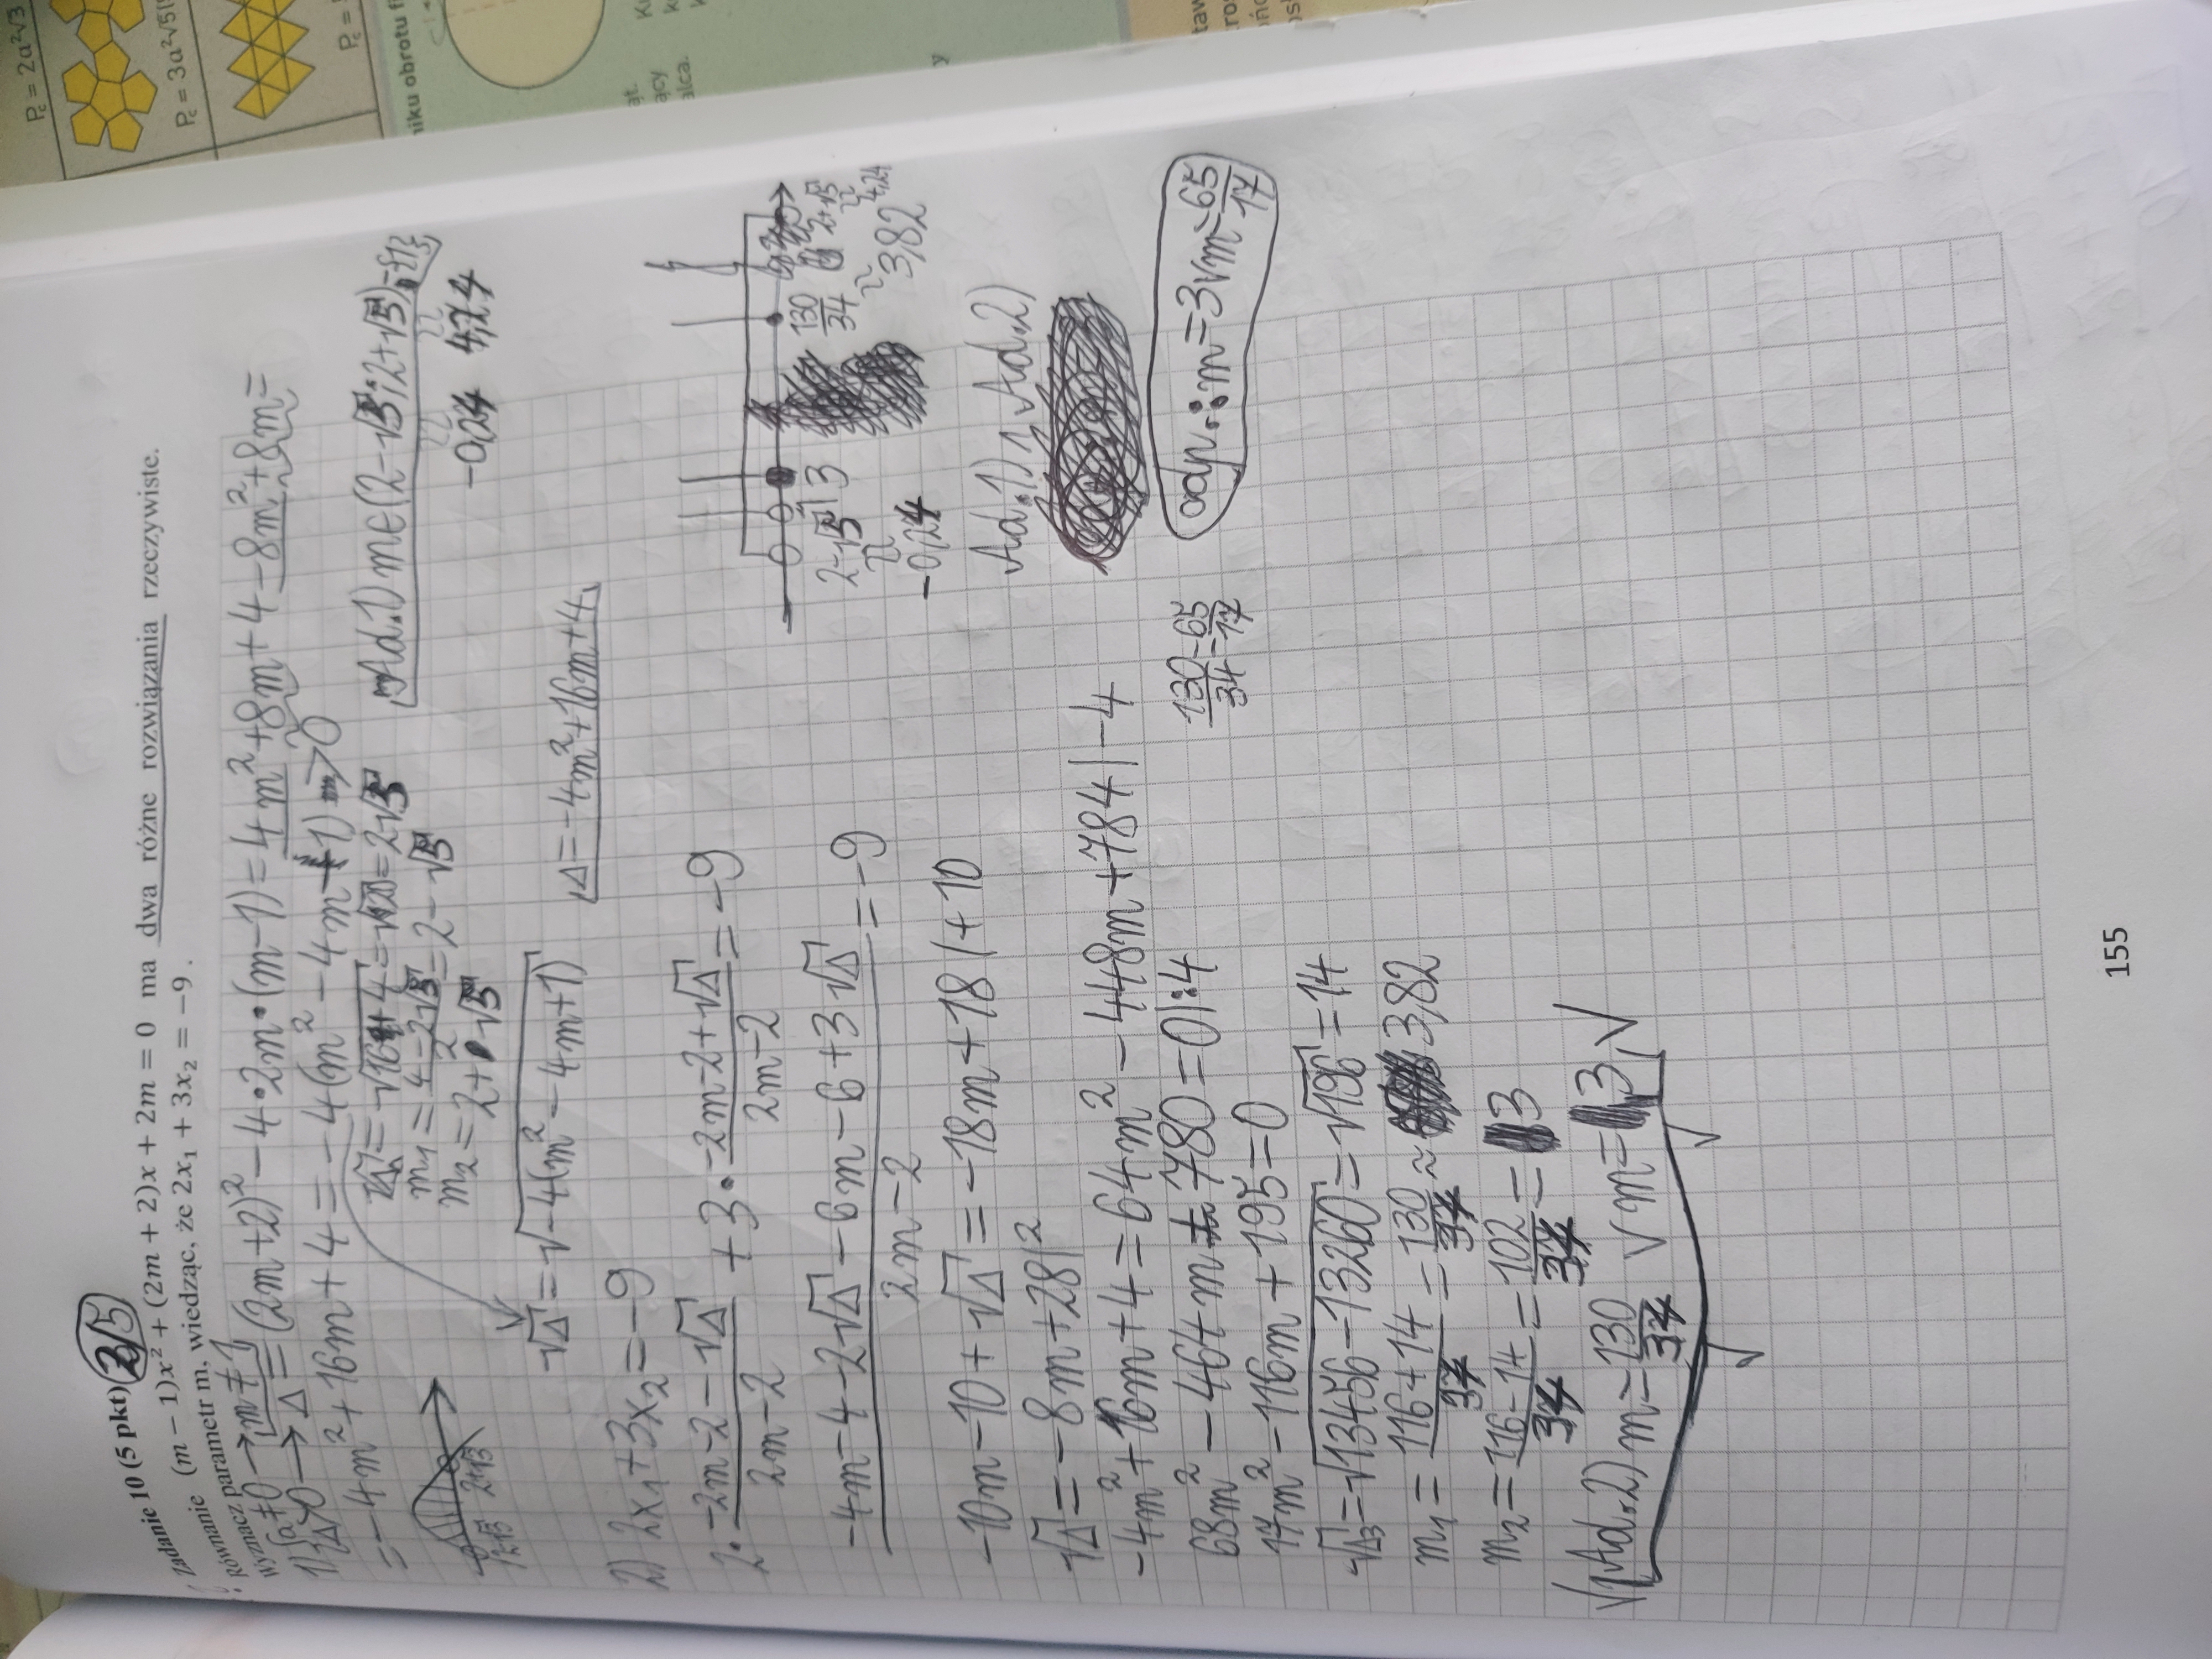 P_c = 2a²√3
P_c = 3a²√5(
P_c =
niku obrotu f
ąt.
ący
alca.
y
Zadanie 10 (5 pkt) 2/5
Równanie (m − 1)x² + (2m + 2)x + 2m = 0 ma dwa różne rozwiązania rzeczywiste.
Wyznacz parametr m, wiedząc, że 2x₁ + 3x₂ = −9 .
1) { a≠0 → m≠1
Δ>0 → Δ = (2m+2)² − 4·2m·(m−1) = 4m² + 8m + 4 − 8m² + 8m =
= −4m² + 16m + 4 = −4(m² − 4m − 1) > 0
= √20 = 2√5
m₁ = (4−2√5)/2 = 2−√5
m₂ = 2+√5
Ad.1) m∈(2−√5; 2+√5)
−0,24 4,24
2−√5 2+√5
√Δ = √(−4(m² − 4m + 1))
Δ = −4m² + 16m + 4
2) 2x₁ + 3x₂ = −9
2· (−2m−2−√Δ)/(2m−2) + 3· (−2m−2+√Δ)/(2m−2) = −9
(−4m−4−2√Δ−6m−6+3√Δ)/(2m−2) = −9
−10m−10+√Δ = −18m+18 |+10
√Δ = −8m+28 |²
−4m²+16m+4 = 64m² − 448m + 784 |−4
68m² − 464m + 780 = 0 |:4
17m² − 116m + 195 = 0
√Δ₃ = √(13456−13260) = √196 = 14
m₁ = (116+14)/34 = 130/34 ≈ 3,82
m₂ = (116−14)/34 = 102/34 = 3
Ad.2) m = 130/34 ∨ m = 3
2−√5 1 3 130/34 2+√5
−0,24 ≈ 3,82 4,24
Ad.1) ∧ Ad.2)
130/34 = 65/17
odp.: m = 3 ∨ m = 65/17
155